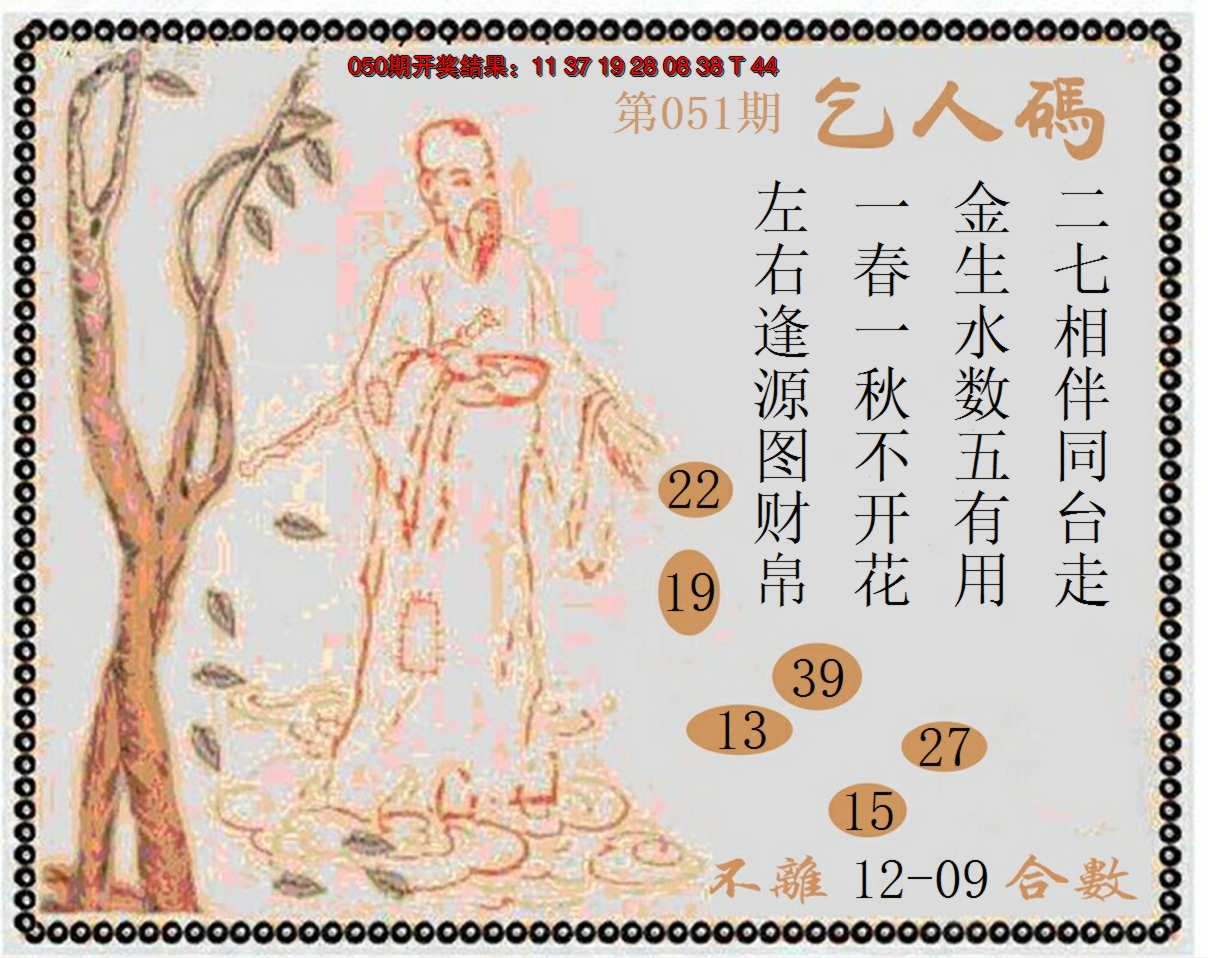 050期开奖结果：11 37 19 28 08 38 T 44
第051期 乞人碼
二七相伴同台走
金生水数五有用
一春一秋不开花
左右逢源图财帛
22
19
39
13
27
15
不離 12-09 合數